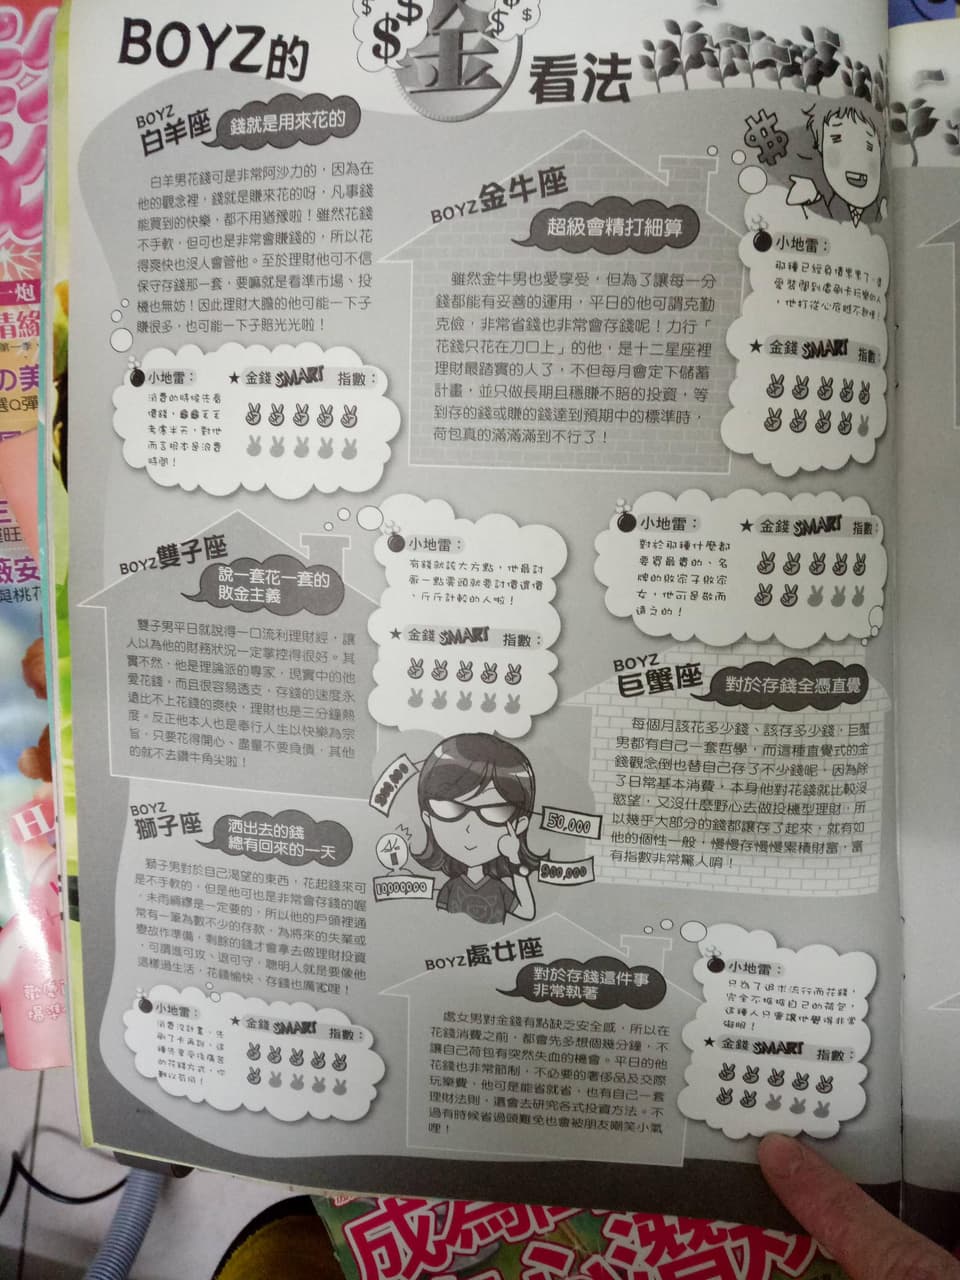 BOYZ的 金 看法
BOYZ
白羊座
錢就是用來花的
白羊男花錢可是非常阿沙力的，因為在
他的觀念裡，錢就是賺來花的呀，凡事錢
能買到的快樂，都不用猶豫啦！雖然花錢
不手軟，但可也是非常會賺錢的，所以花
得爽快也沒人會管他。至於理財他可不信
保守存錢那一套，要嘛就是看準市場、投
機也無妨！因此理財大膽的他可能一下子
賺很多，也可能一下子賠光光啦！
小地雷：
消費的時候先看
價錢，
考慮半天，對他
而言根本是浪費
時間！
★金錢SMART指數：
BOYZ金牛座
超級會精打細算
雖然金牛男也愛享受，但為了讓每一分
錢都能有妥善的運用，平日的他可謂克勤
克儉，非常省錢也非常會存錢呢！力行「
花錢只花在刀口上」的他，是十二星座裡
理財最踏實的人了，不但每月會定下儲蓄
計畫，並只做長期且穩賺不賠的投資，等
到存的錢或賺的錢達到預期中的標準時，
荷包真的滿滿滿到不行了！
小地雷：
那種已經負債累累了，還
愛裝闊到處刷卡玩樂的人
，他打從心底瞧不起唷！
★金錢SMART指數：
BOYZ雙子座
說一套花一套的
敗金主義
雙子男平日就說得一口流利理財經，讓
人以為他的財務狀況一定掌控得很好。其
實不然，他是理論派的專家，現實中的他
愛花錢，而且很容易透支，存錢的速度永
遠比不上花錢的爽快，理財也是三分鐘熱
度。反正他本人也是奉行人生以快樂為宗
旨，只要花得開心、盡量不要負債，其他
的就不去鑽牛角尖啦！
小地雷：
有錢就該大方點，他最討
厭一點零頭就要討價還價
，斤斤計較的人啦！
★金錢SMART指數：
小地雷：
對於那種什麼都
要買最貴的、名
牌的敗家子敗家
女，他可是敬而
遠之的！
★金錢SMART指數：
BOYZ
巨蟹座
對於存錢全憑直覺
每個月該花多少錢、該存多少錢，巨蟹
男都有自己一套哲學，而這種直覺式的金
錢觀念倒也替自己存了不少錢呢，因為除
了日常基本消費，本身他對花錢就比較沒
慾望，又沒什麼野心去做投機型理財，所
以幾乎大部分的錢都讓存了起來，就有如
他的個性一般，慢慢存慢慢累積財富，富
有指數非常驚人唷！
50,000
10000000
900,000
BOYZ
獅子座
洒出去的錢
總有回來的一天
獅子男對於自己渴望的東西，花起錢來可
是不手軟的，但是他可也是非常會存錢的喔
，未雨綢繆是一定要的，所以他的戶頭裡通
常有一筆為數不少的存款，為將來的失業或
變故作準備，剩餘的錢才會拿去做理財投資
，可謂進可攻、退可守，聰明人就是要像他
這樣過生活，花錢愉快、存錢也厲害哩！
小地雷：
消費沒計畫，先
刷了卡再說，這
種先享受後痛苦
的花錢方式，他
難以苟同！
★金錢SMART指數：
BOYZ處女座
對於存錢這件事
非常執著
處女男對金錢有點缺乏安全感，所以在
花錢消費之前，都會先多想個幾分鐘，不
讓自己荷包有突然失血的機會。平日的他
花錢也非常節制，不必要的奢侈品及交際
玩樂費，他可是能省就省，也有自己一套
理財法則，還會去研究各式投資方法。不
過有時候省過頭難免也會被朋友嘲笑小氣
哩！
小地雷：
只為了追求流行而花錢，
完全不掂掂自己的荷包，
這種人只會讓他覺得非常
礙眼！
★金錢SMART指數：